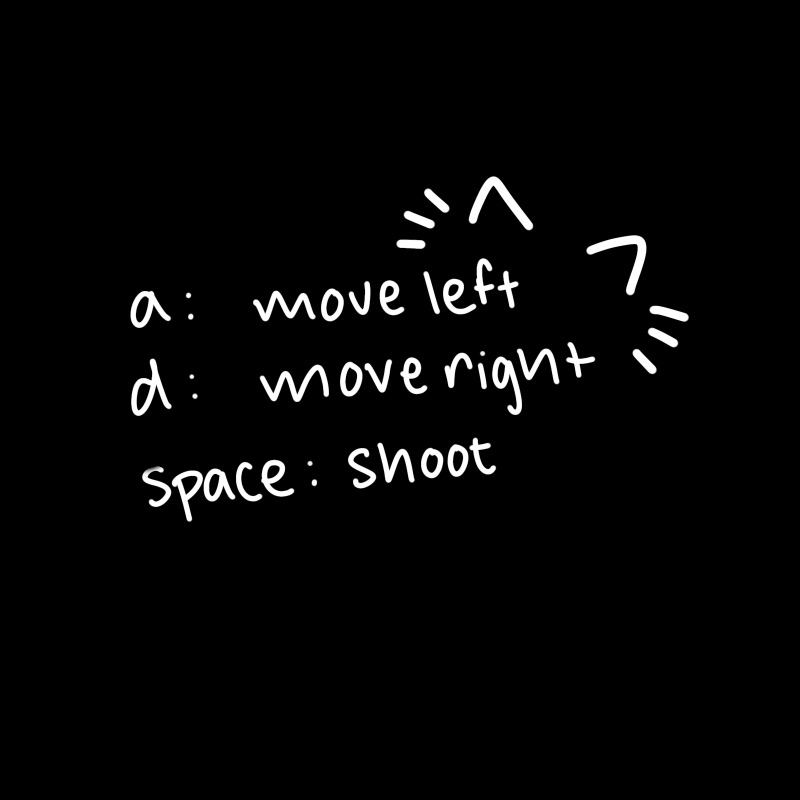 a: move left
d: move right
space: shoot